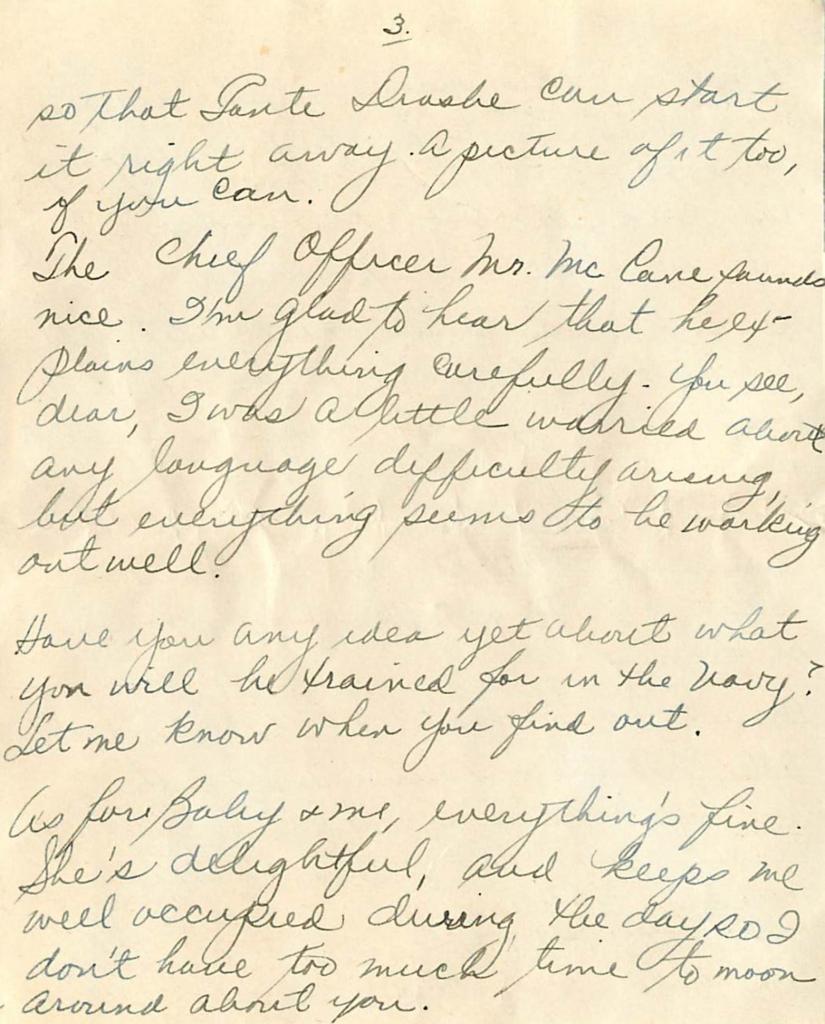 3.
so that Tante Drashe can start
it right away. A picture of it too,
if you can.
The Chief Officer Mr. Mc Cane sounds
nice. I'm glad to hear that he ex-
plains everything carefully. You see,
dear, I was a little worried about
any language difficulty arising,
but everything seems to be working
out well.
Have you any idea yet about what
you will be trained for in the Navy?
Let me know when you find out.
As for Baby & me, everything's fine.
She's delightful, and keeps me
well occupied during the day so I
don't have too much time to moon
around about you.